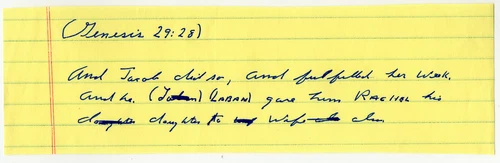 (Genesis 29:28)
And Jacob did so, and fulfilled her week,
and he. (Laban) (LABAN) gave him RACHEL his
daughter daughter to wife also